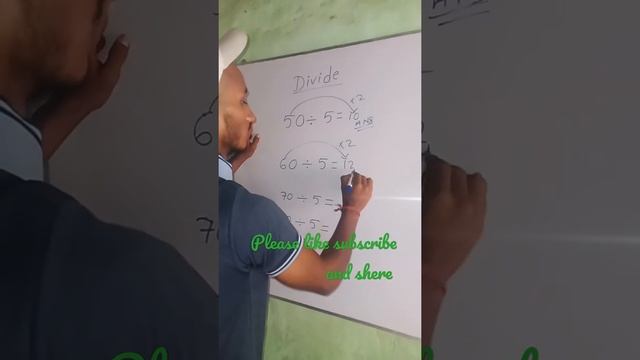 Divide
×2
50 ÷ 5 = 10
ANS
×2
60 ÷ 5 = 12
70 ÷ 5 =
÷ 5 =
Please like subscribe
and shere